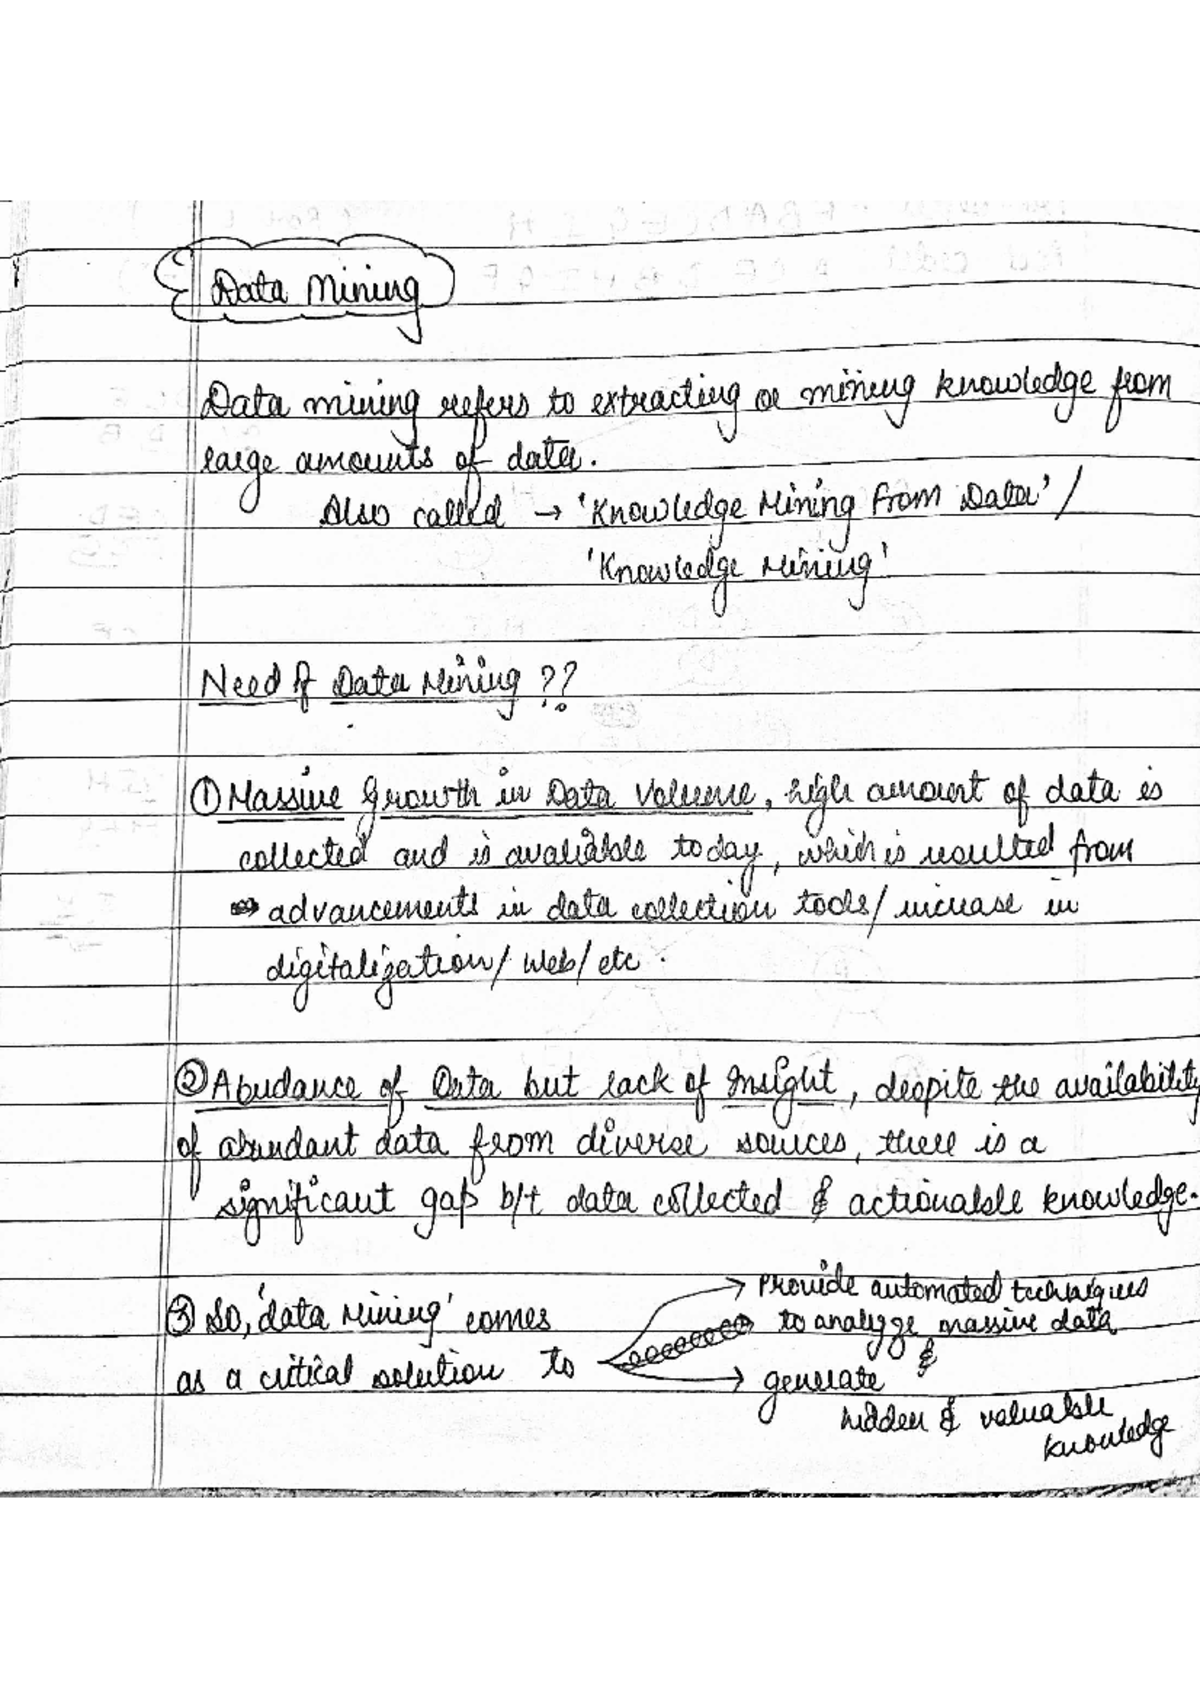 Data Mining
Data mining refers to extracting or mining knowledge from
large amounts of data.
Also called → 'Knowledge Mining From Data' /
'Knowledge Mining'
Need of Data Mining ??
① Massive Growth in Data Volume, high amount of data is
collected and is available today, which is resulted from
advancements in data collection tools/ increase in
digitalization/ web/ etc.
② Abudance of Data but lack of Insight, despite the availability
of abundant data from diverse sources, there is a
significant gap b/t data collected & actionable knowledge.
③ So, 'data Mining' comes
as a critical solution to
→ Provide automated techniques
to analyze massive data
&
→ generate
hidden & valuable
knowledge